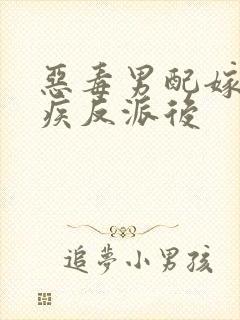 惡毒男配嫁
疾反派後
追夢小男孩